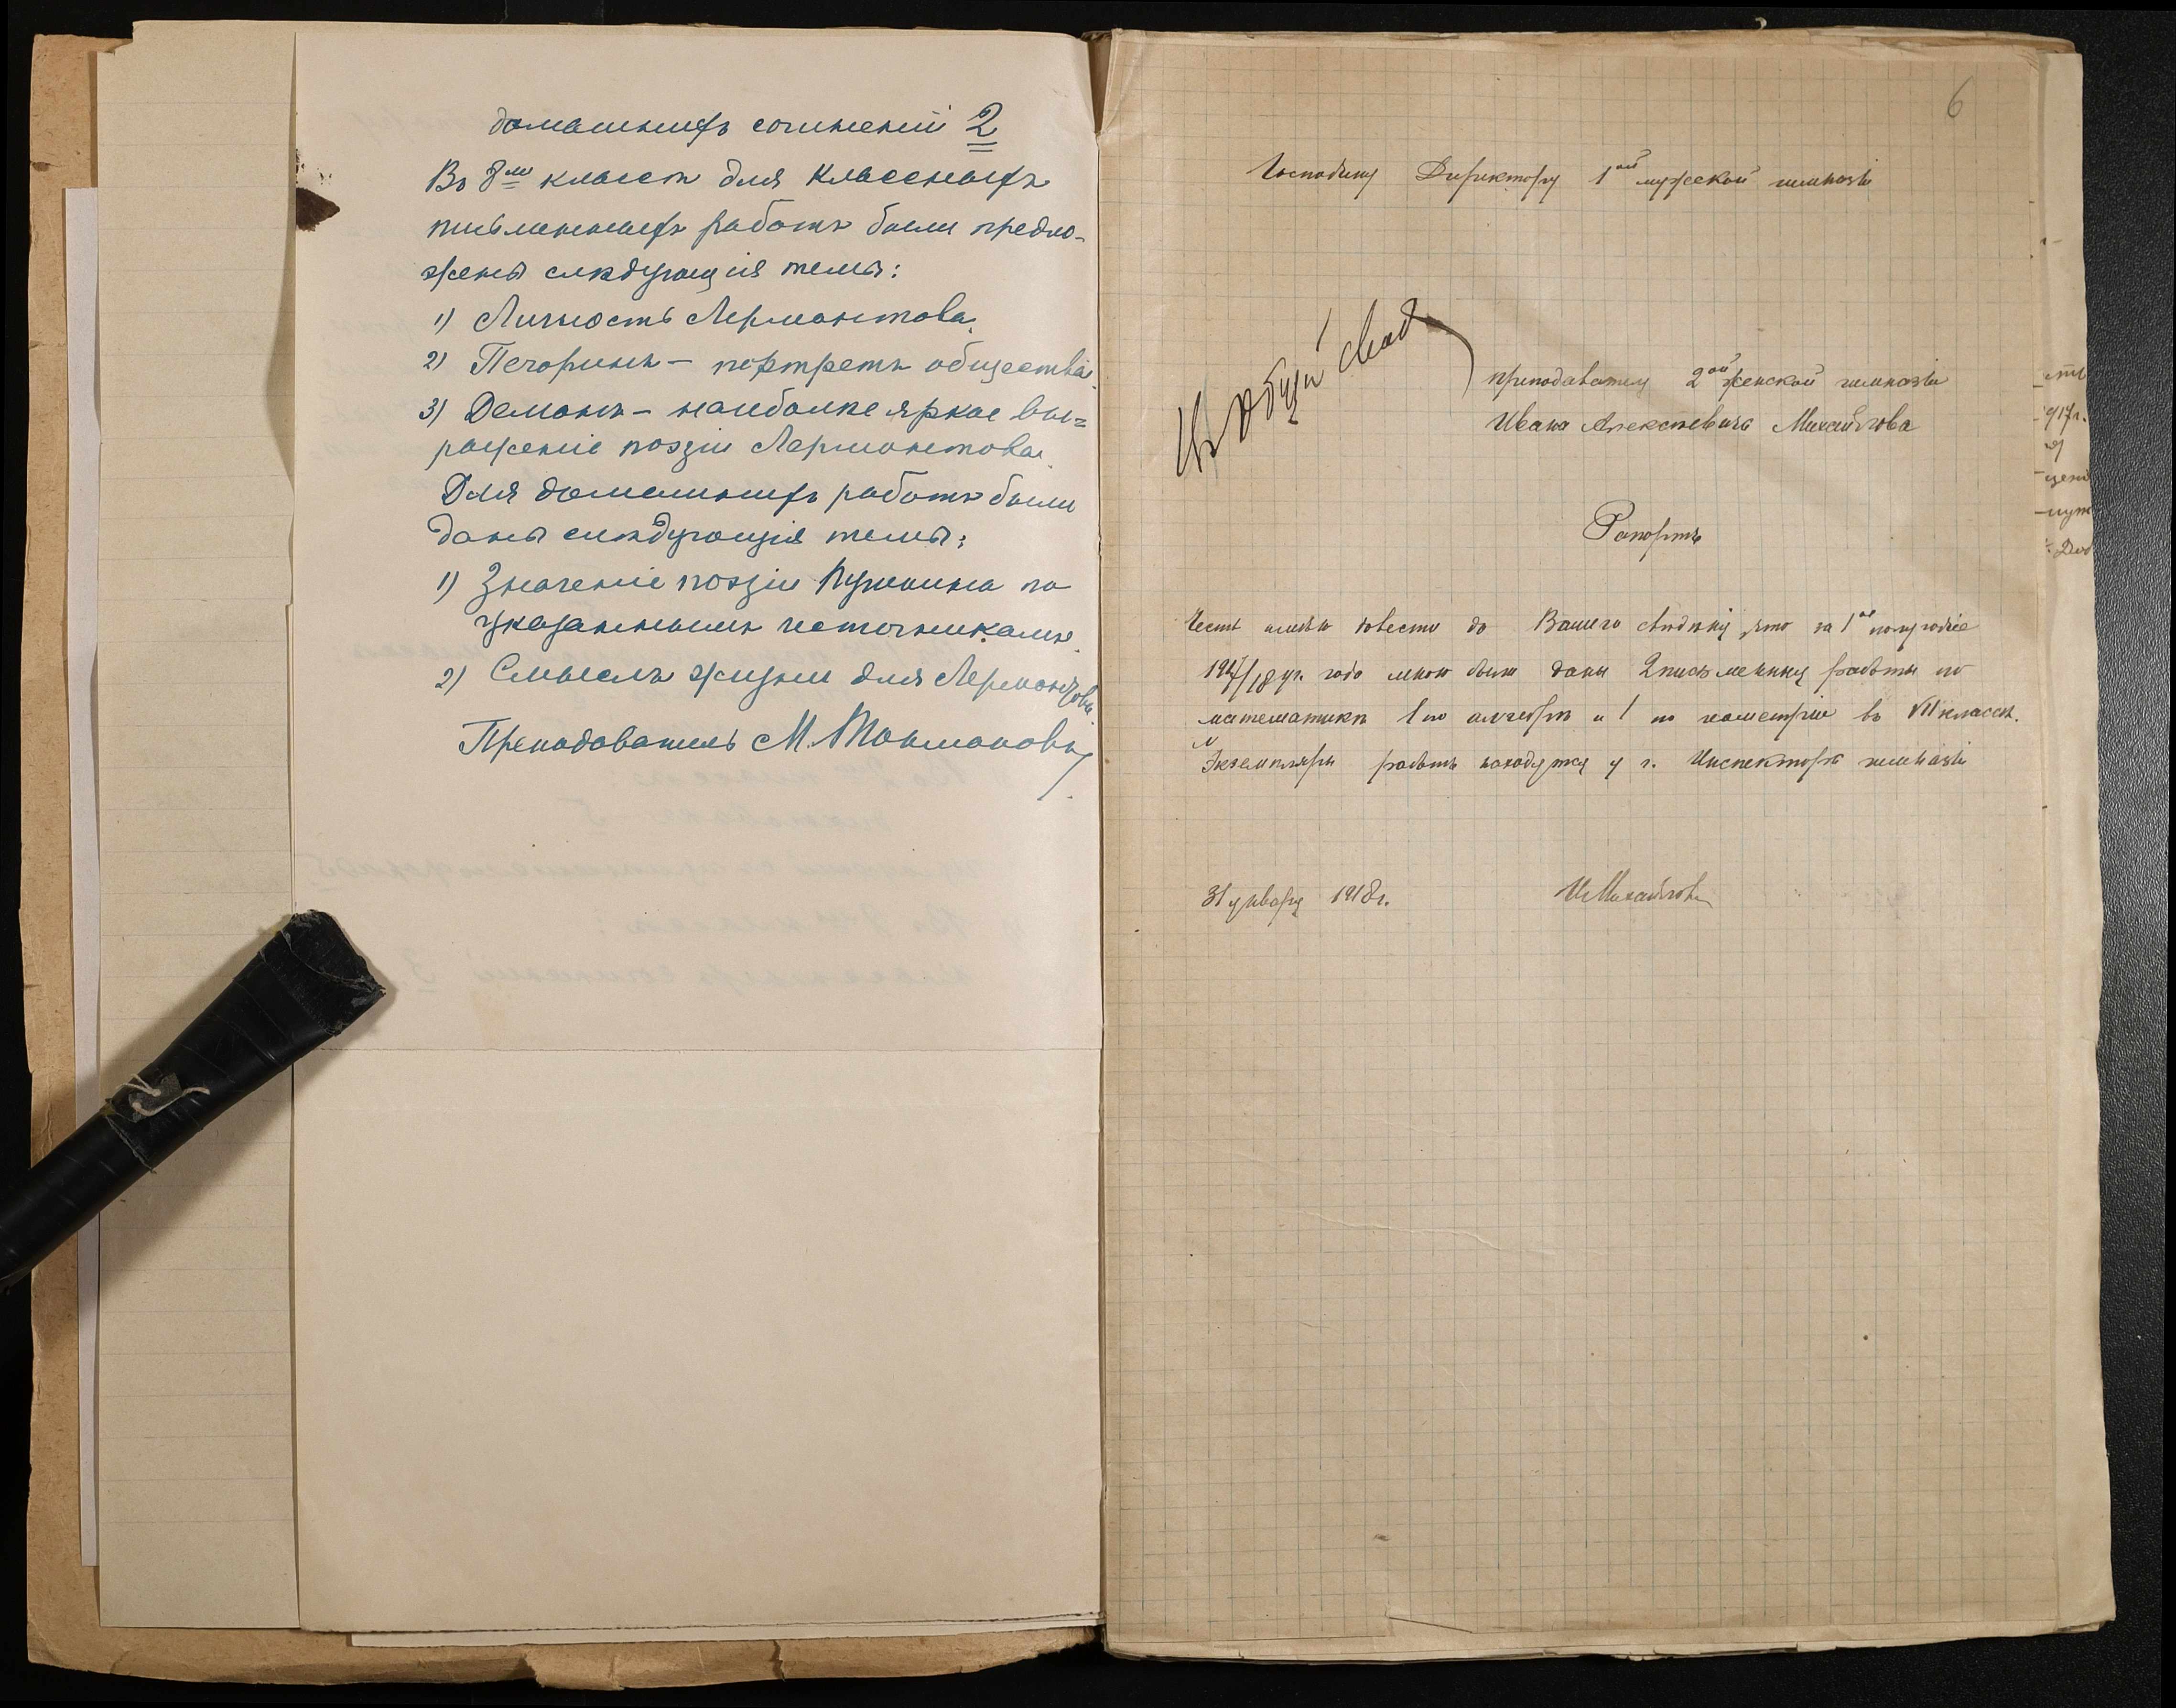 домашнихъ сочиненій 2
Въ 8мъ классѣ для классныхъ
письменныхъ работъ были предло-
жены слѣдующія темы:
1) Личность Лермонтова.
2) Печоринъ – портретъ общества.
3) Демонъ – наиболѣе яркое вы=
раженіе поэзіи Лермонтова.
Для домашнихъ работъ были
даны слѣдующія темы:
1) Значеніе поэзіи Пушкина по
указаннымъ источникамъ.
2) Смыслъ жизни для Лермонтова.
Преподаватель М.
6
Господину Директору 1ой мужской гимназіи
Въ общій сводъ
преподавателя 2ой женской гимназіи
Ивана Алексѣевича Михайлова
Рапортъ
Честь имѣю довести до Вашего свѣдѣнія, что за 1ое полугодіе
1917/18 уч. года мною были даны 2 письменныя работы по
математикѣ 1 по алгебрѣ и 1 по геометріи въ VII классѣ.
Экземпляры работъ находятся у г. Инспектора гимназіи
31 января 1918 г. И Михайловъ
1917 г.